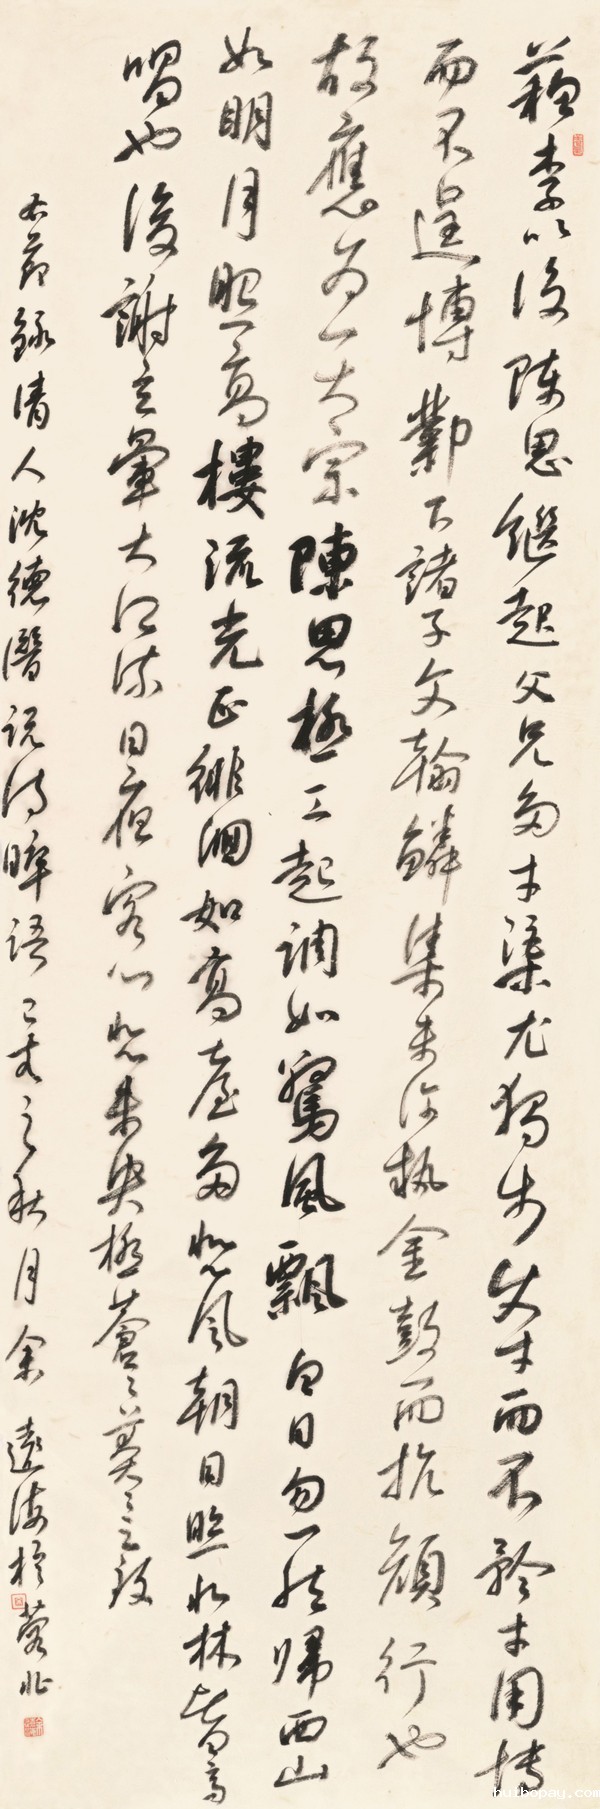 蘇李以後陳思繼起父兄多才渠尤獨步使才而不矜才用博
而不逞博鄴下諸子文翰鱗集未許執金鼓而抗顏行也
故應為一大宗陳思極工起調如驚風飄白日忽然歸西山
如明月照高樓流光正徘徊如高臺多悲風朝日照北林皆高
唱也後謝玄暉大江流日夜客心悲未央極蒼〻莽〻之致
右節錄清人沈德潛說詩晬語己亥之秋月余遠海於蓉北
huibopay.com